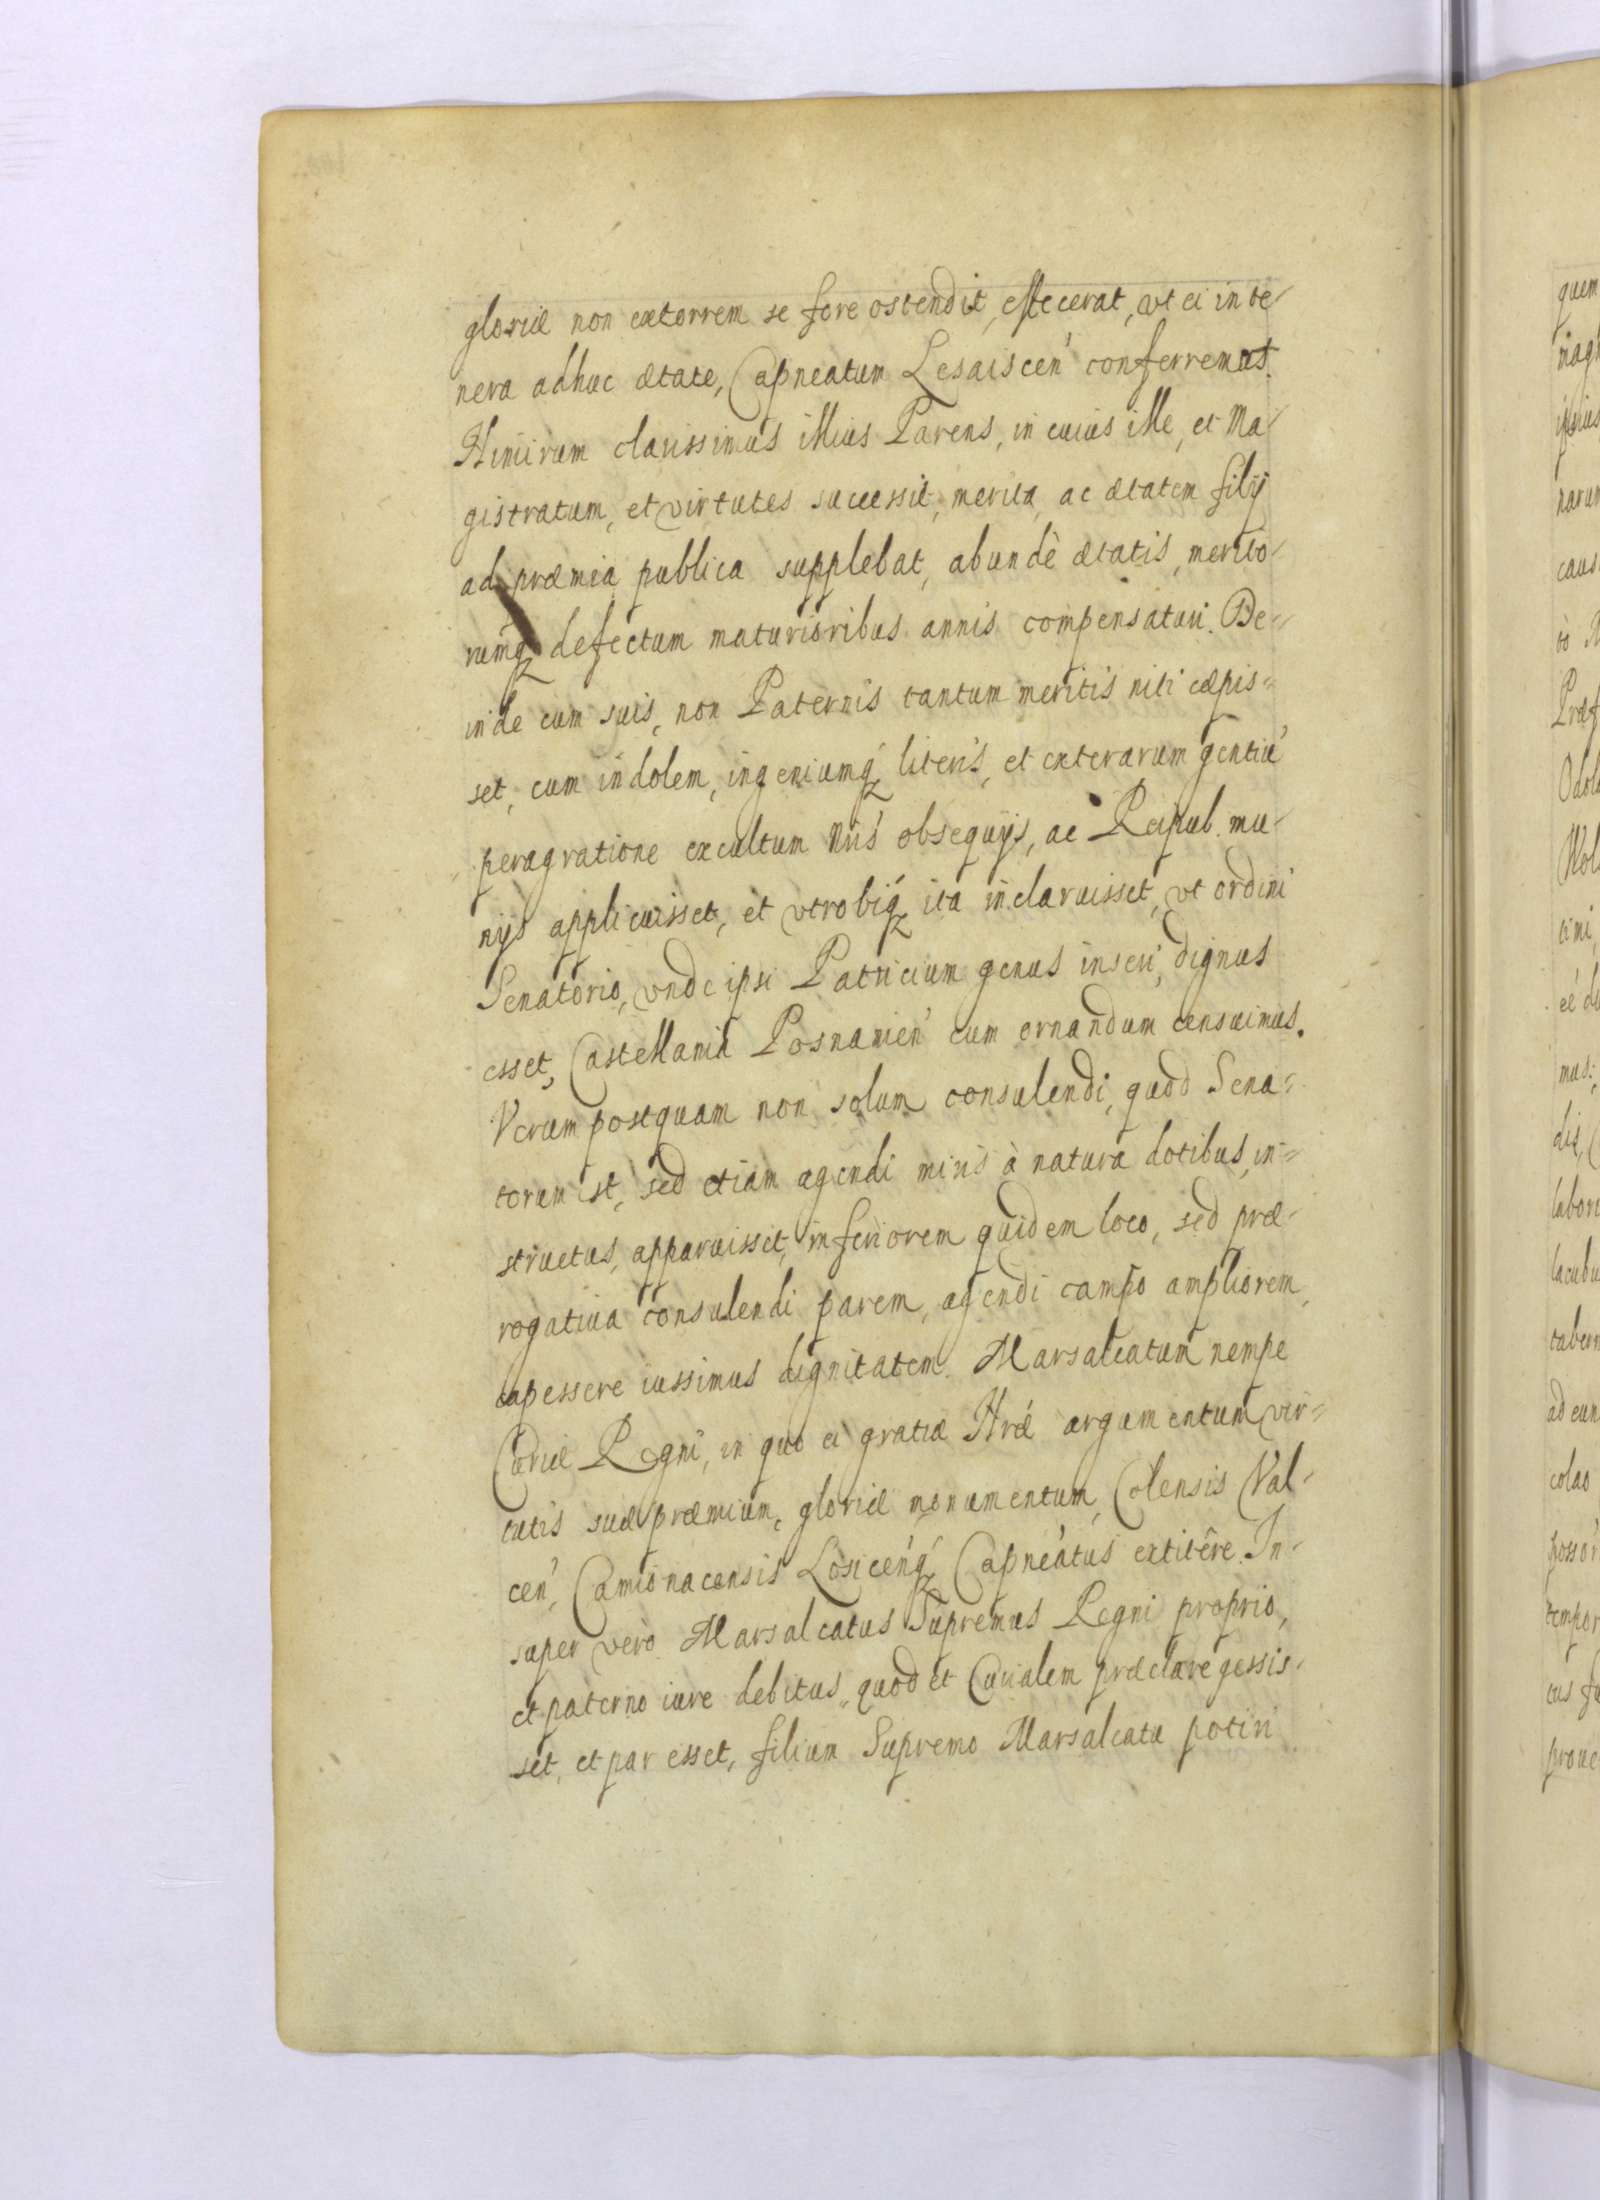 gloriæ non extorrem se fore ostendit, effecerat, vt ei in te-
nera adhuc ætate, Capneatum Lesaiscen' conferremus.
Nimirum clarissimus illius Parens, in cuius ille, et Ma-
gistratum, et virtutes successit, merita, ac ætatem filij
ad præmia publica supplebat, abundè ætatis, merito-
rumq; defectum maturioribus annis compensaturi. De-
inde cum suis, non Paternis tantum meritis niti cæpis-
set, cum indolem, ingeniumq; literis, et exterarum gentiu'
peragratione excultum Nris' obsequijs, ac Reipub. mu-
nijs applicuisset, et vtrobiq; ita inclaruisset, vt ordini
Senatorio, vnde ipsi Patricium genus inseri, dignus
esset, Castellaniâ Posnanien' eum ornandum censuimus.
Verum postquam non solum consulendi, quod Sena-
torum est, sed etiam agendi miris à natura dotibus, in-
structus, apparuisset, inferiorem quidem loco, sed præ-
rogatiua consulendi parem, agendi campo ampliorem,
capessere iussimus dignitatem. Marsalcatum nempe
Curiæ Regni, in quo ei gratiæ Nræ argumentum vir-
tutis suæ præmium, gloriæ monumentum, Colensis Val-
cen', Camionacensis Losicen'q; Capneatus extitêre. In-
super verò Marsalcatus Supremus Regni proprio,
et paterno iure debitus, quod et Curialem præclare gessis-
set, et par esset, filium Supremo Marsalcatu potiri
quem
mag
ipsius
narum
caus
Præf
Odol
Wol
cimi
mus:
dis,
labor
lacubu
tabern
ad eun
colao
possor'
tempor
cus fu
proue